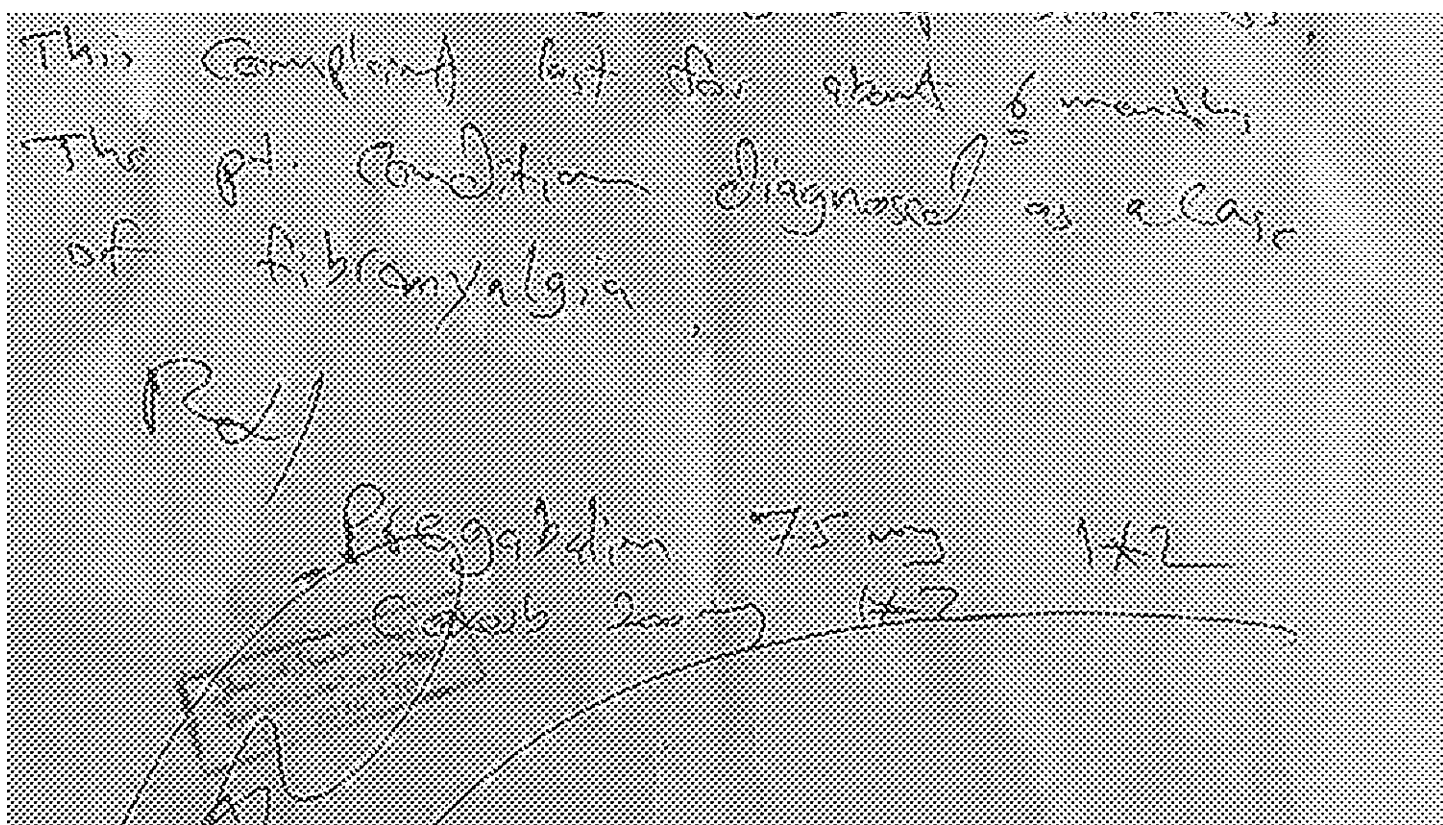 This Complaint last for about 6 months
The pt. Condition diagnosed as a Case
of fibromyalgia.
Rx/
Pregabalin 75 mg 1*2
200 mg 1*2